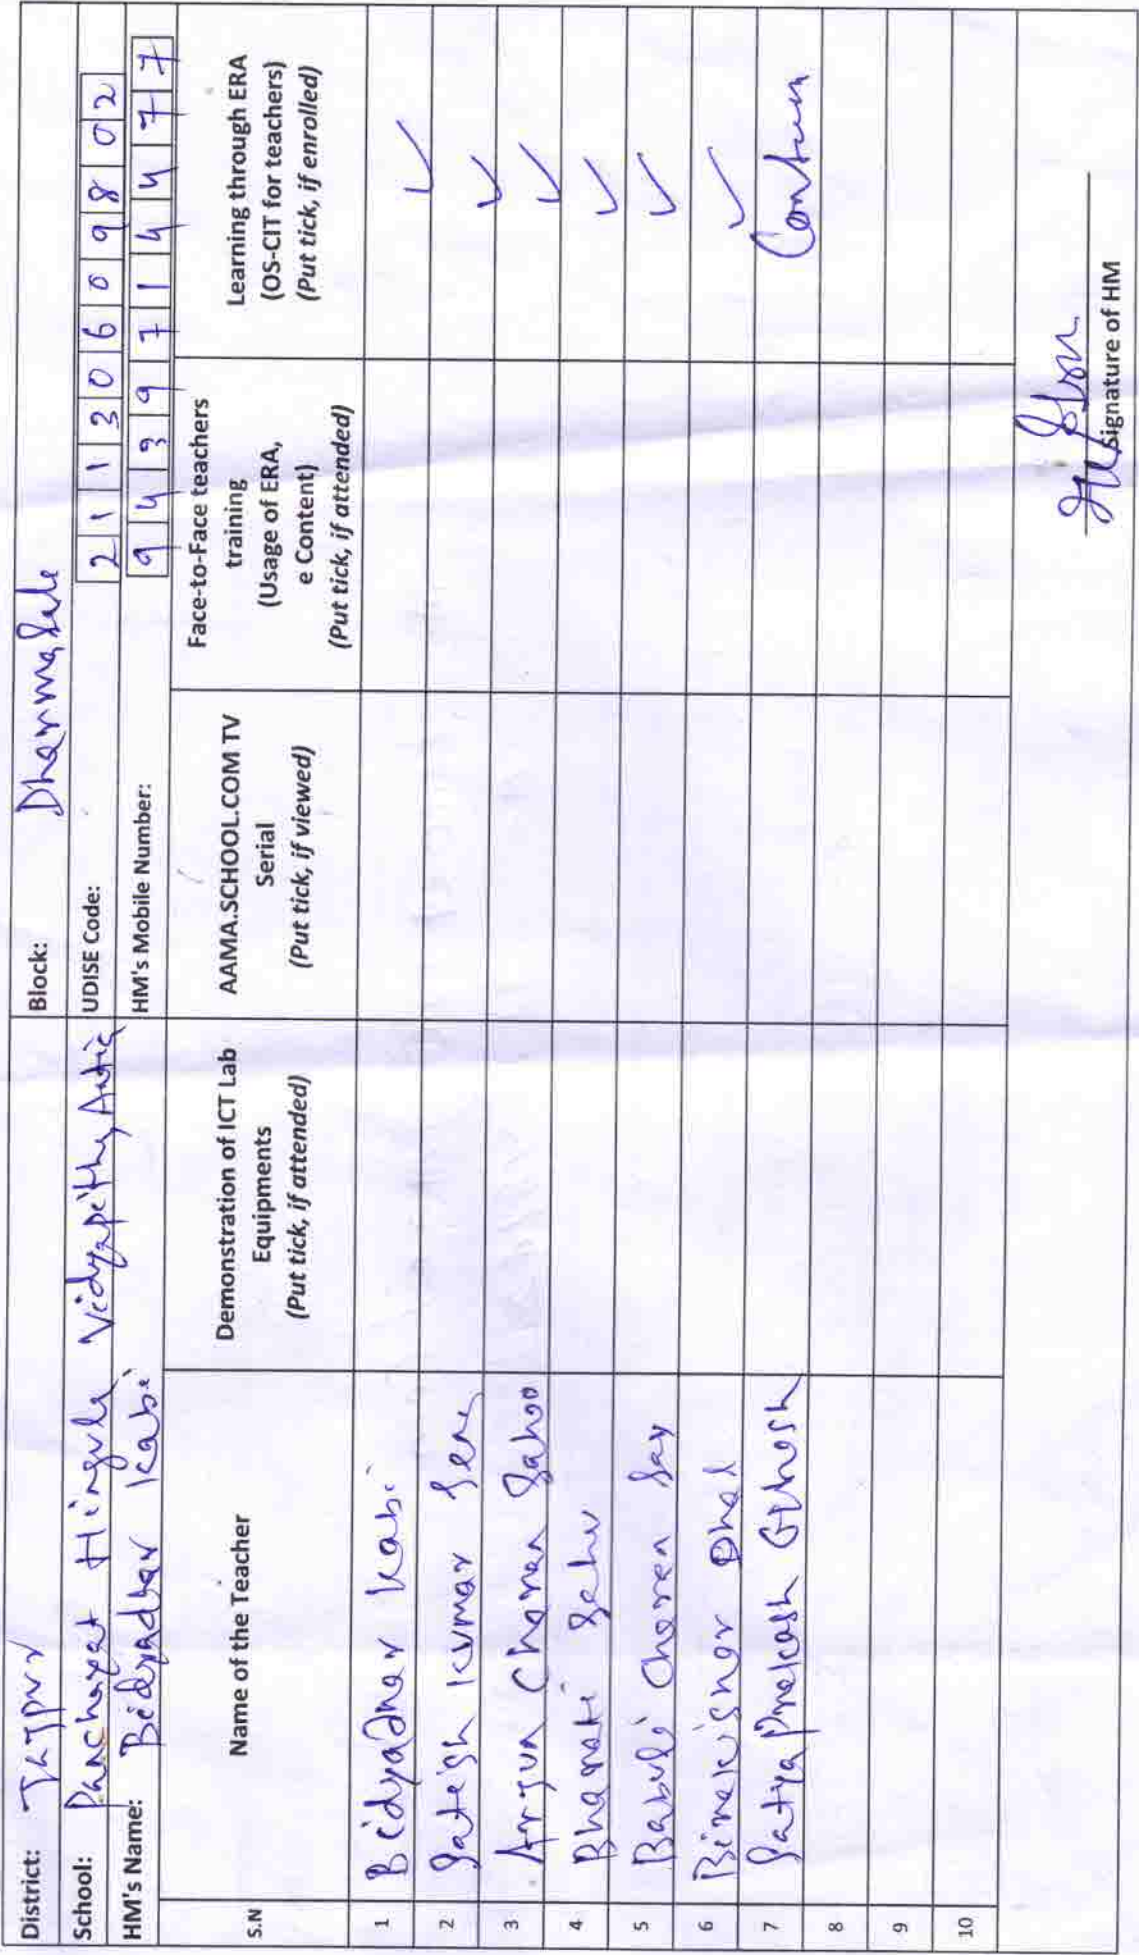 District: Jajpur Block: Dharmasala
School: Panchayat Hingula Vidyapitha, Antia UDISE Code: 21130609802
HM's Name: Bidyadhar Kabi HM's Mobile Number: 9439714477
S.N Name of the Teacher Demonstration of ICT Lab Equipments (Put tick, if attended) AAMA.SCHOOL.COM TV Serial (Put tick, if viewed) Face-to-Face teachers training (Usage of ERA, e Content) (Put tick, if attended) Learning through ERA (OS-CIT for teachers) (Put tick, if enrolled)
1 Bidyadhar Kabi ✓
2 Satish Kumar Jena ✓
3 Arjun Charan Sahoo ✓
4 Bharati Sahu ✓
5 Babuli Charan Jay ✓
6 Binakishar Dhal ✓
7 Satya Prakash Ghosh
8
9
10
Signature of HM